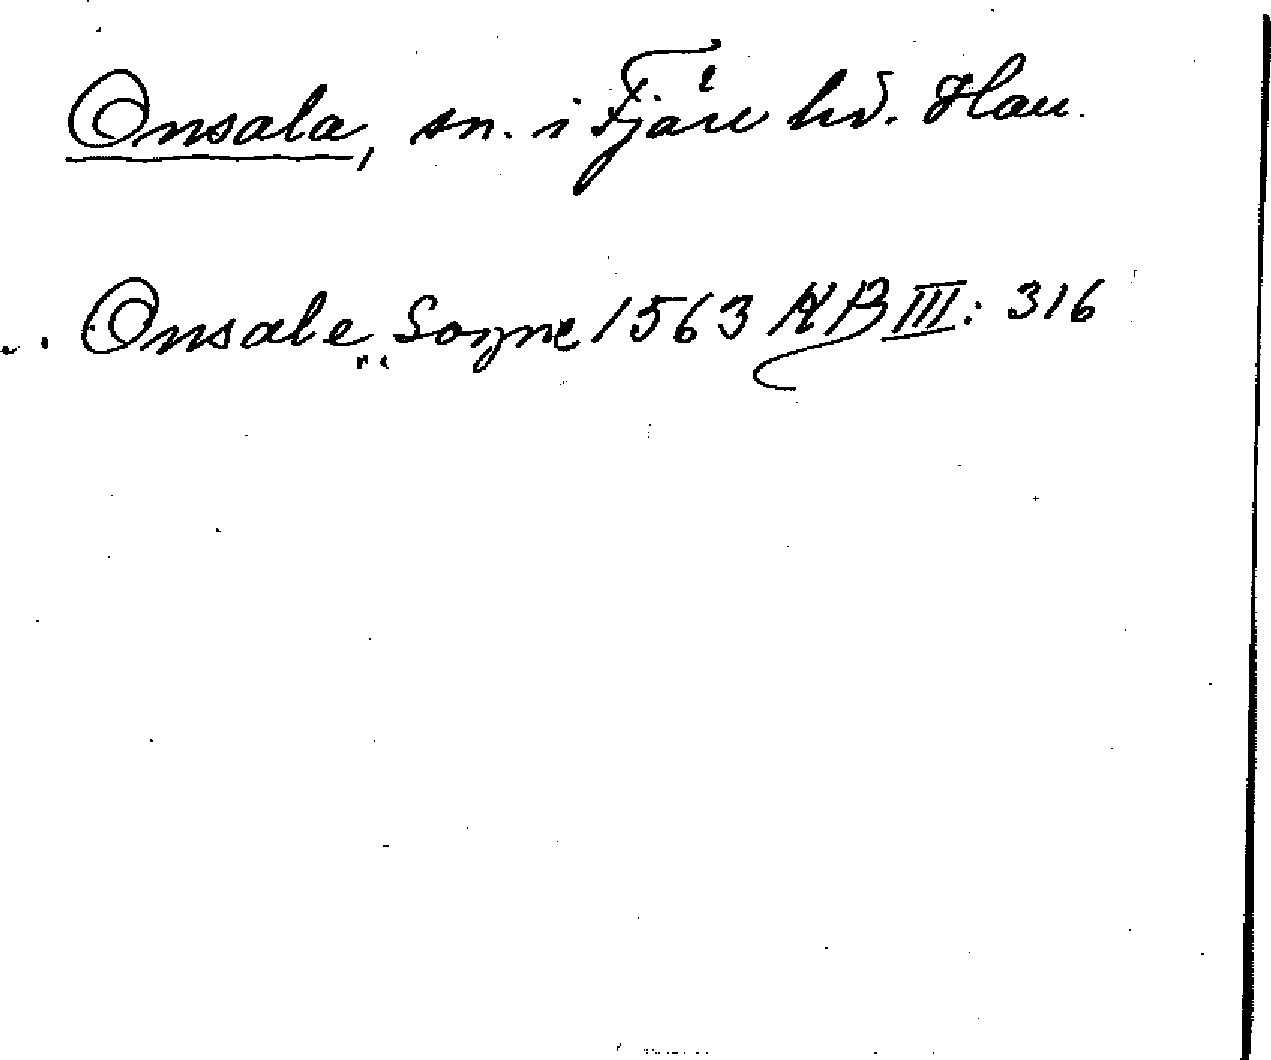 Onsala, sn. i Fjäre hd. Hall.
Onsale Sogne 1563 KB III: 316